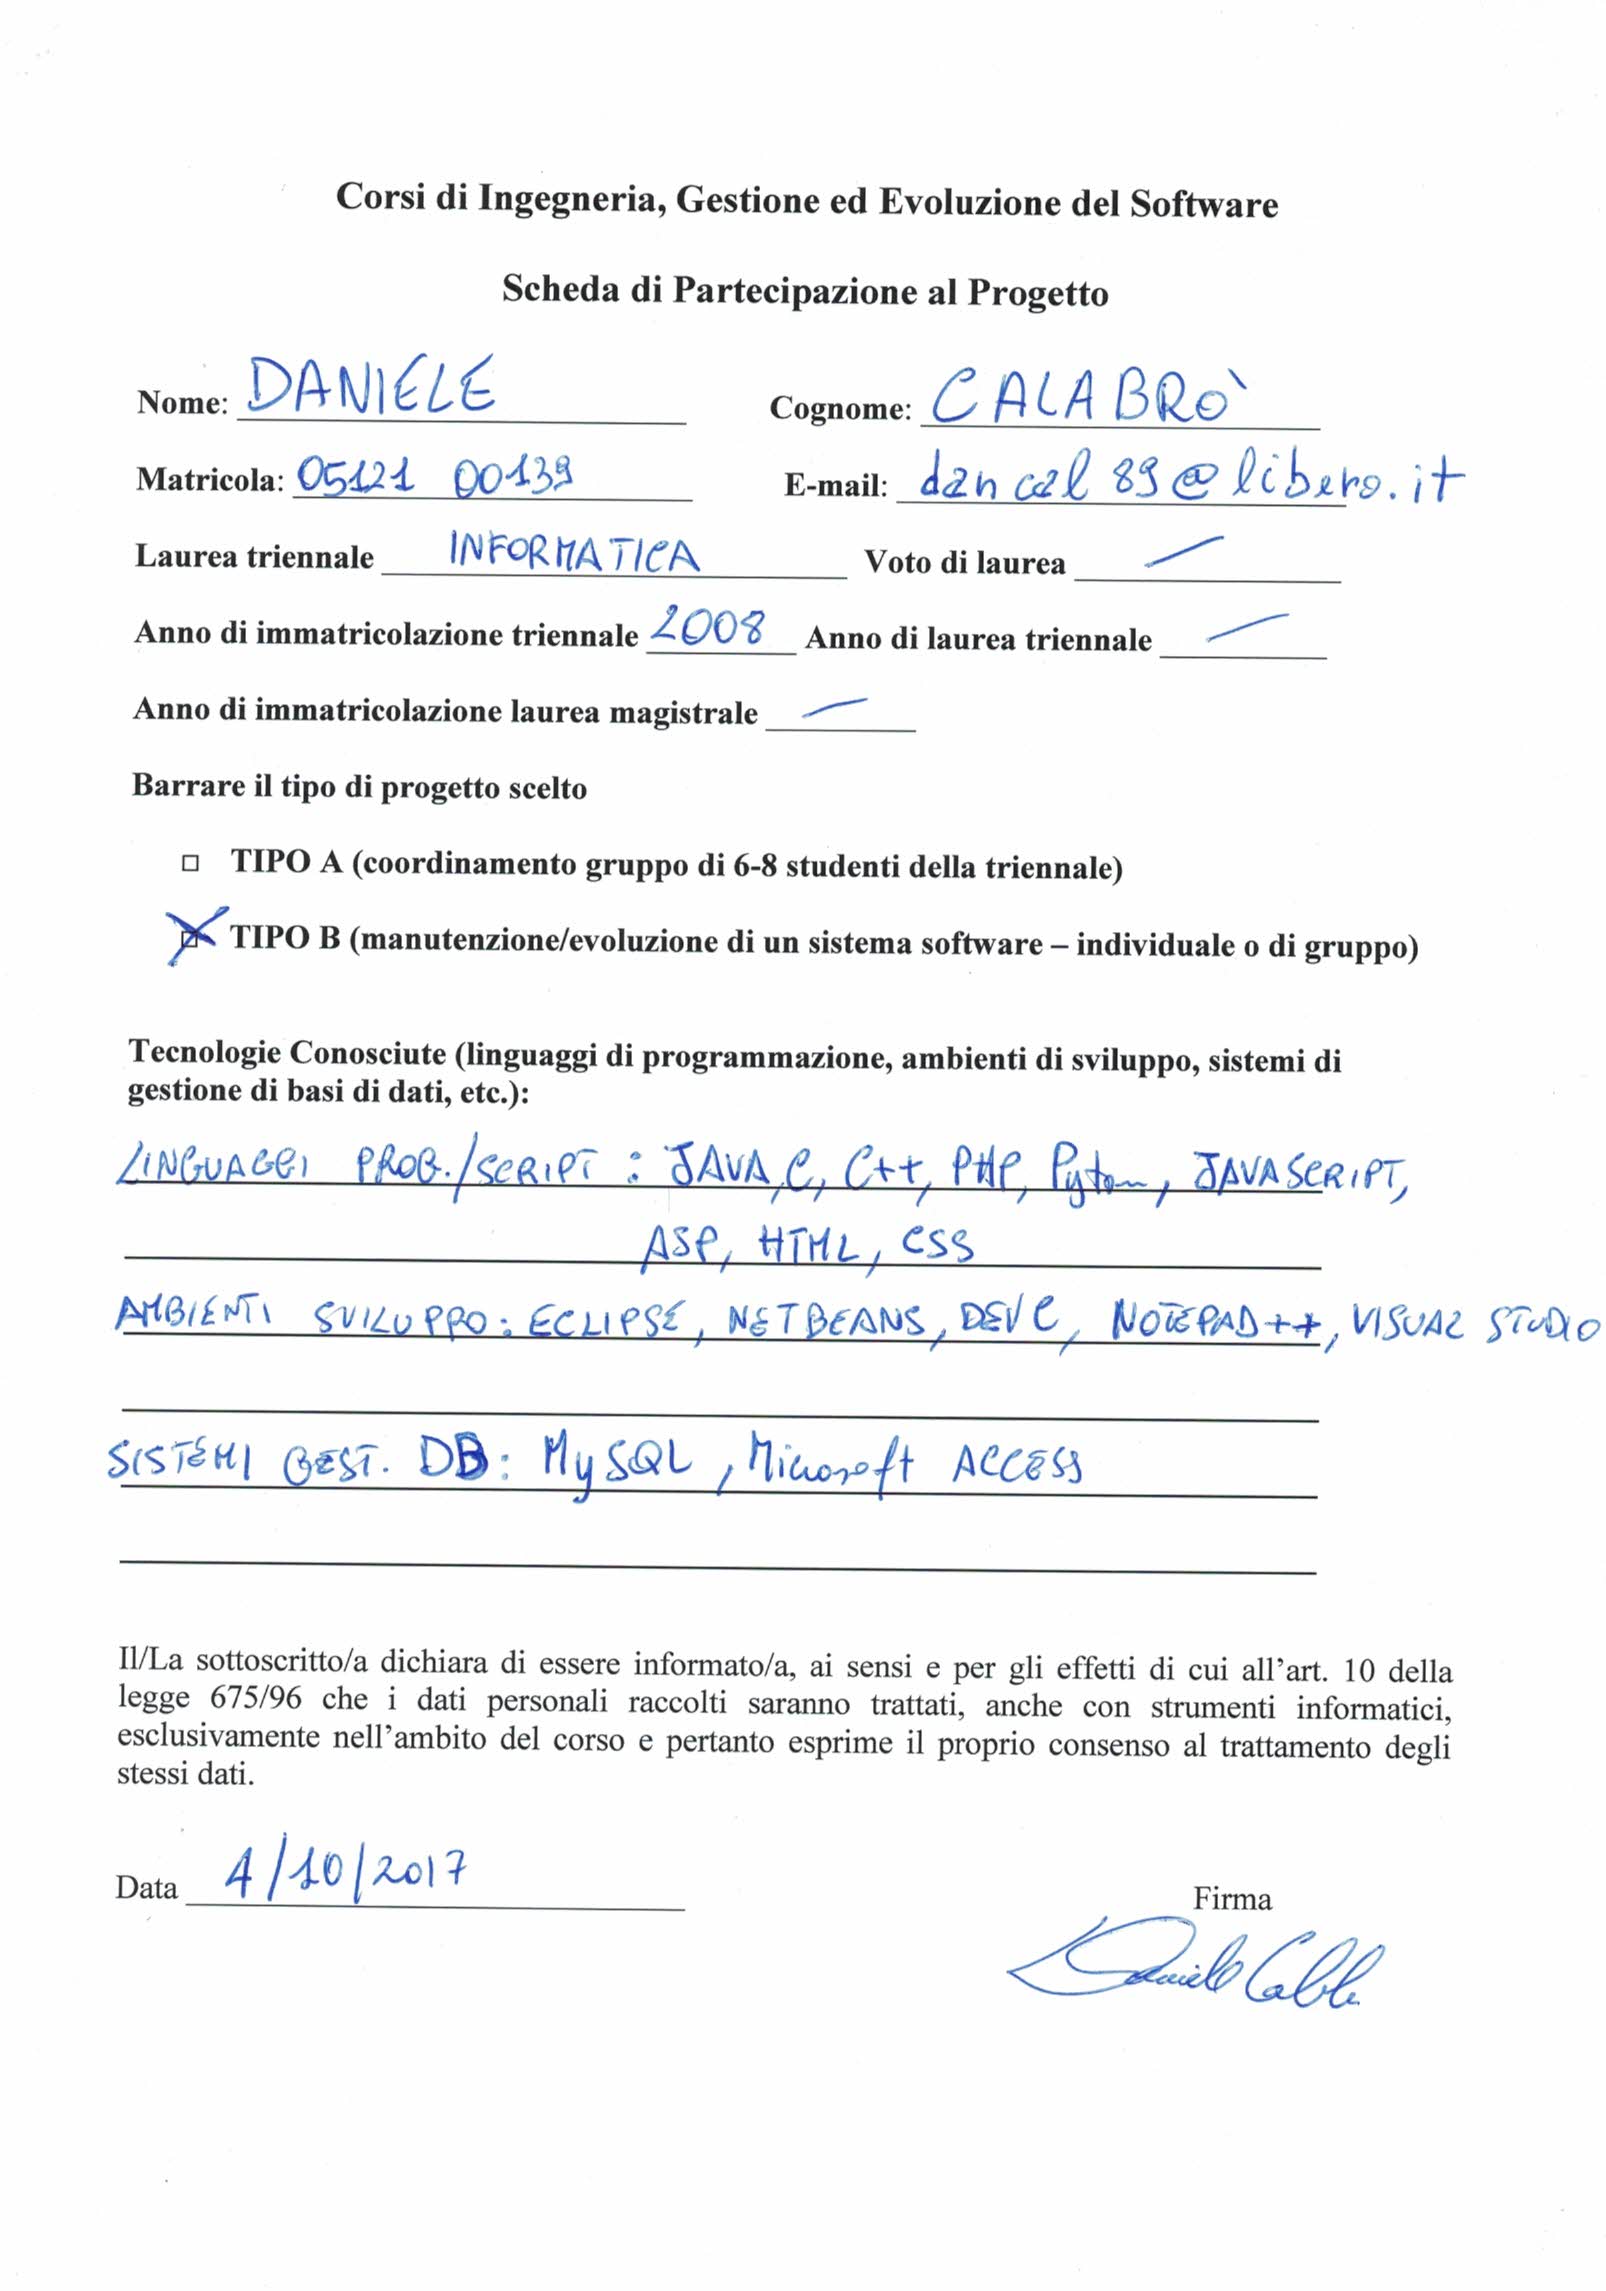 Corsi di Ingegneria, Gestione ed Evoluzione del Software
Scheda di Partecipazione al Progetto
Nome: DANIELE Cognome: CALABRÒ
Matricola: 05121 00139 E-mail: dancal89@libero.it
Laurea triennale INFORMATICA Voto di laurea —
Anno di immatricolazione triennale 2008 Anno di laurea triennale —
Anno di immatricolazione laurea magistrale —
Barrare il tipo di progetto scelto
☐ TIPO A (coordinamento gruppo di 6-8 studenti della triennale)
☒ TIPO B (manutenzione/evoluzione di un sistema software – individuale o di gruppo)
Tecnologie Conosciute (linguaggi di programmazione, ambienti di sviluppo, sistemi di
gestione di basi di dati, etc.):
LINGUAGGI PROG./SCRIPT : JAVA, C, C++, PHP, Pyton, JAVASCRIPT,
ASP, HTML, CSS
AMBIENTI SVILUPPO: ECLIPSE, NETBEANS, DEV C, NOTEPAD++, VISUAL STUDIO
SISTEMI GEST. DB: MySQL, Microsoft ACCESS
Il/La sottoscritto/a dichiara di essere informato/a, ai sensi e per gli effetti di cui all'art. 10 della
legge 675/96 che i dati personali raccolti saranno trattati, anche con strumenti informatici,
esclusivamente nell'ambito del corso e pertanto esprime il proprio consenso al trattamento degli
stessi dati.
Data 4/10/2017
Firma
Daniele